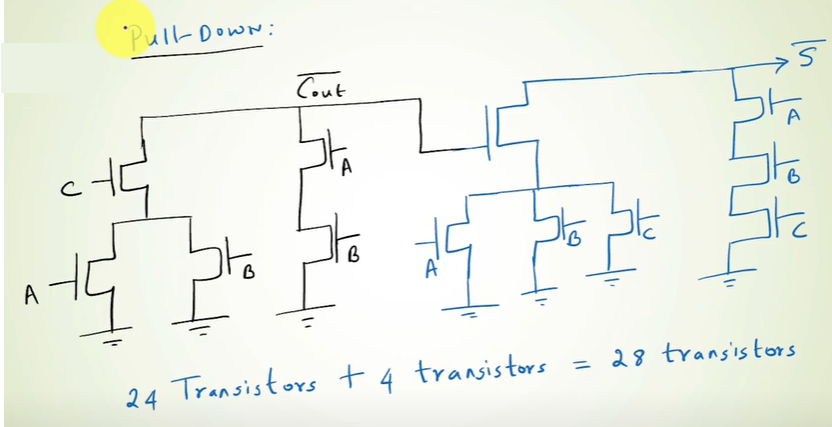 Pull-Down:
Cout
S
C
A
B
A
B
A
B
C
A
B
C
24 Transistors + 4 transistors = 28 transistors